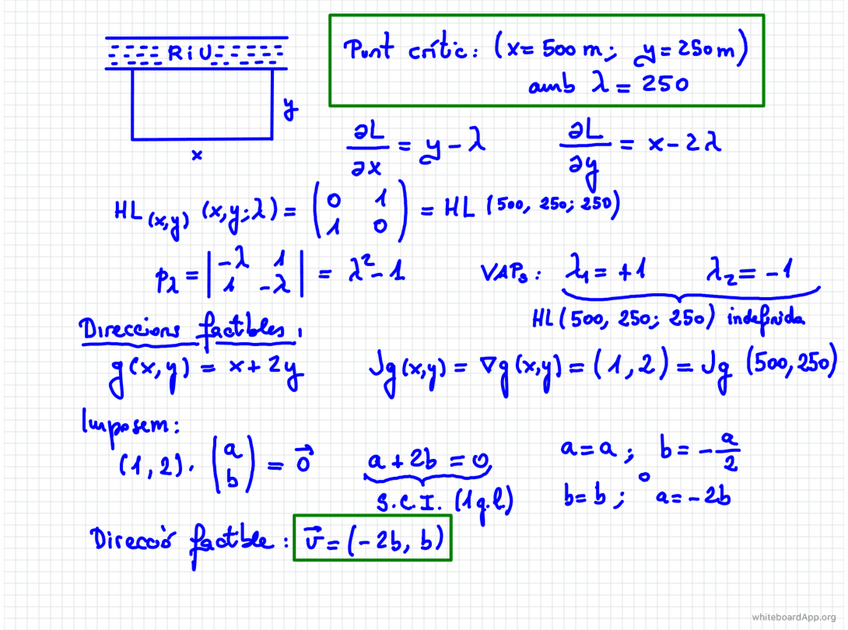 RIU
y
x
Punt crític: (x = 500 m; y = 250 m)
amb λ = 250
∂L/∂x = y - λ ∂L/∂y = x - 2λ
HL(x,y) (x,y;λ) = (0 1 / 1 0) = HL (500, 250; 250)
pλ = |-λ 1 / 1 -λ| = λ² - 1 VAPs: λ₁ = +1 λ₂ = -1
HL (500, 250; 250) indefinida
Direccions factibles:
g(x,y) = x + 2y Jg(x,y) = ∇g(x,y) = (1, 2) = Jg (500, 250)
Imposem:
(1, 2) · (a / b) = 0⃗ a + 2b = 0 a = a ; b = -a/2
S.C.I. (1 g.l.) o b = b ; a = -2b
Direcció factible: v⃗ = (-2b, b)
whiteboardApp.org